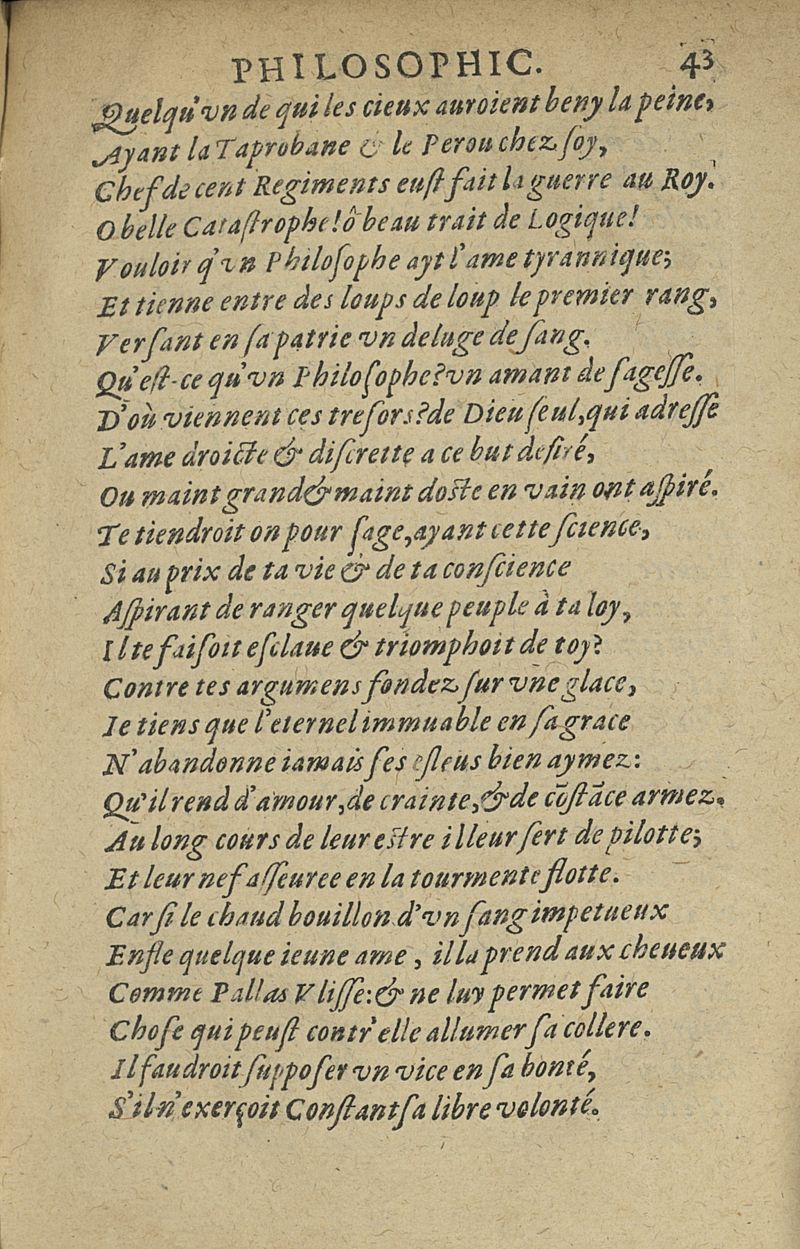 PHILOSOPHIC. 43
Quelqu'vn de qui les cieux auroient beny la peine,
Ayant la Taprobane & le Perou chez ſoy,
Chef de cent Regiments euſt fait la guerre au Roy.
O belle Cataſtrophe! ô beau trait de Logique!
Vouloir q'vn Philoſophe ayt l'ame tyrannique;
Et tienne entre des loups de loup le premier rang,
Verſant en ſa patrie vn deluge de ſang.
Qu'eſt-ce qu'vn Philoſophe? vn amant de ſageſſe.
D'où viennent ces treſors? de Dieu ſeul, qui adreſſe
L'ame droicte & diſcrette a ce but deſiré,
Ou maint grand & maint docte en vain ont aſpiré.
Te tiendroit on pour ſage, ayant cette ſcience,
Si au prix de ta vie & de ta conſcience
Aſpirant de ranger quelque peuple à ta loy,
Il te faiſoit eſclaue & triomphoit de toy?
Contre tes argumens fondez ſur vne glace,
Ie tiens que l'eternel immuable en ſa grace
N'abandonne iamais ſes eſleus bien aymez:
Qu'il rend d'amour, de crainte, & de cõſtãce armez.
Au long cours de leur eſtre il leur ſert de pilotte;
Et leur nef aſſeuree en la tourmente flotte.
Car ſi le chaud bouillon d'vn ſang impetueux
Enfle quelque ieune ame, il la prend aux cheueux
Comme Pallas Vliſſe: & ne luy permet faire
Choſe qui peuſt contr'elle allumer ſa collere.
Il faudroit ſuppoſer vn vice en ſa bonté,
S'il n'exerçoit Conſtant ſa libre volonté.